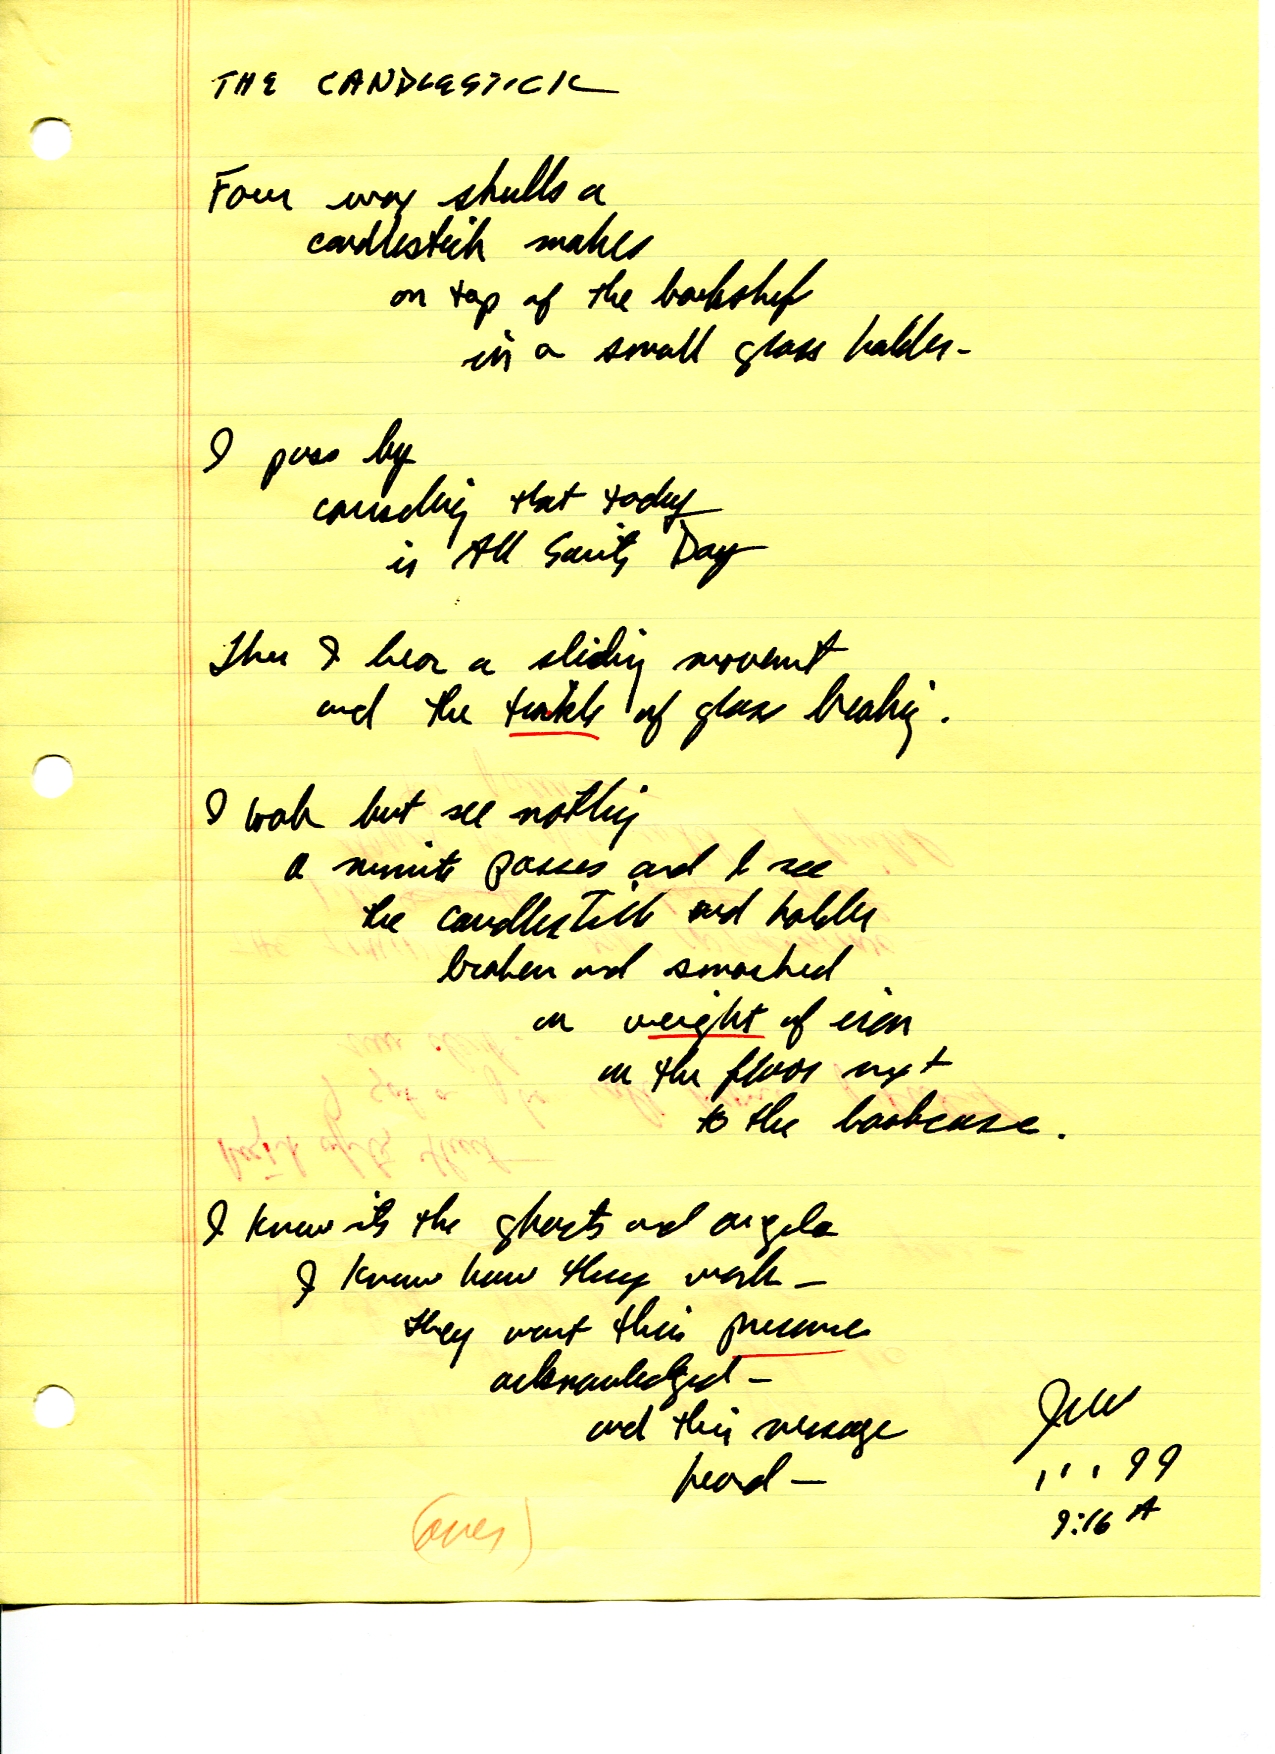 THE CANDLESTICK
Four wax skulls a
candlestick makes
on top of the bookshelf
in a small glass holder-
I pass by
considering that today
is All Saints Day
Then I hear a sliding movement
and the tinkle of glass breaking.
I look but see nothing
A minute passes and I see
the candlestick and holder
broken and smashed
on weight of iron
on the floor next
to the bookcase.
I know its the ghosts and angels
I know how they work-
they want their presence
acknowledged-
and their message
heard-
99
9:16 A
(over)